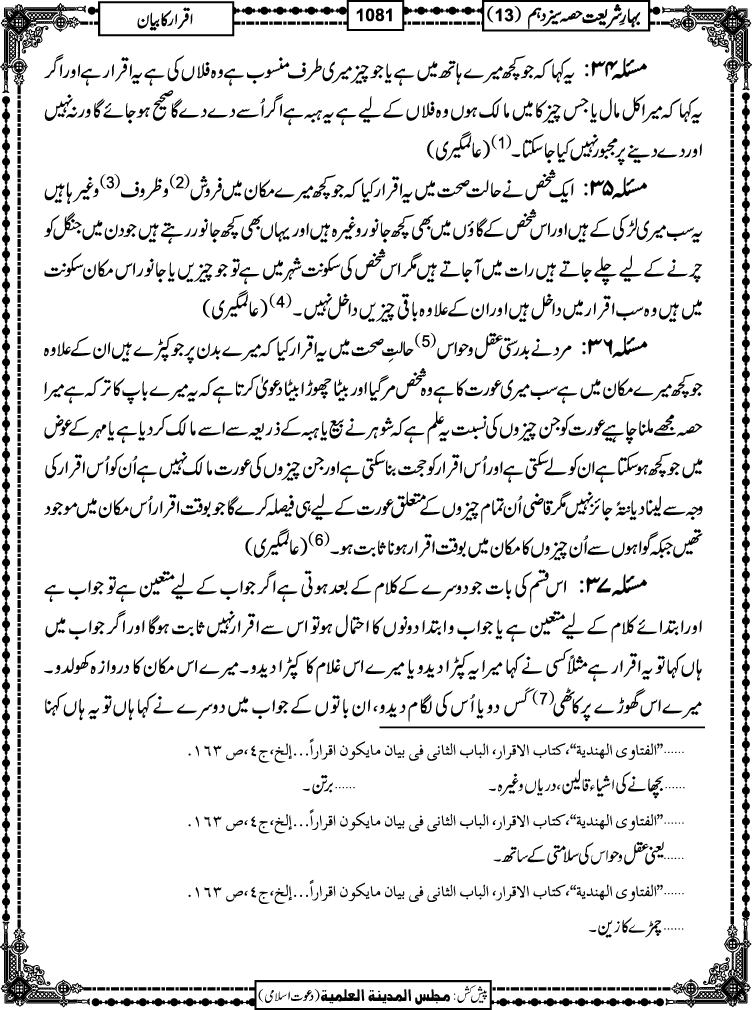 بہارِ شریعت حصہ سیزدہم (13)
1081
اقرار کا بیان
مسئلہ ۳۴: یہ کہا کہ جو کچھ میرے ہاتھ میں ہے یا جو چیز میری طرف منسوب ہے وہ فلاں کی ہے یہ اقرار ہے اور اگر
یہ کہا کہ میرا کل مال یا جس چیز کا میں مالک ہوں وہ فلاں کے لیے ہے یہ ہبہ ہے اگر اُسے دے دے گا صحیح ہو جائے گا ورنہ نہیں
اور دے دینے پر مجبور نہیں کیا جا سکتا۔(1) (عالمگیری)
مسئلہ ۳۵: ایک شخص نے حالت صحت میں یہ اقرار کیا کہ جو کچھ میرے مکان میں فروش(2) و ظروف(3) وغیرہا ہیں
یہ سب میری لڑکی کے ہیں اور اس شخص کے گاؤں میں بھی کچھ جانور وغیرہ ہیں اور یہاں بھی کچھ جانور رہتے ہیں جو دن میں جنگل کو
چرنے کے لیے چلے جاتے ہیں رات میں آ جاتے ہیں مگر اس شخص کی سکونت شہر میں ہے تو جو چیزیں یا جانور اس مکان سکونت
میں ہیں وہ سب اقرار میں داخل ہیں اور ان کے علاوہ باقی چیزیں داخل نہیں۔(4) (عالمگیری)
مسئلہ ۳۶: مرد نے بدرستی عقل و حواس(5) حالتِ صحت میں یہ اقرار کیا کہ میرے بدن پر جو کپڑے ہیں ان کے علاوہ
جو کچھ میرے مکان میں ہے سب میری عورت کا ہے وہ شخص مر گیا اور بیٹا چھوڑا بیٹا دعویٰ کرتا ہے کہ یہ میرے باپ کا ترکہ ہے میرا
حصہ مجھے ملنا چاہیے عورت کو جن چیزوں کی نسبت یہ علم ہے کہ شوہر نے بیع یا ہبہ کے ذریعہ سے اسے مالک کر دیا ہے یا مہر کے عوض
میں جو کچھ ہو سکتا ہے ان کو لے سکتی ہے اور اُس اقرار کو حجت بنا سکتی ہے اور جن چیزوں کی عورت مالک نہیں ہے اُن کو اُس اقرار کی
وجہ سے لینا دیانۃً جائز نہیں مگر قاضی اُن تمام چیزوں کے متعلق عورت کے لیے ہی فیصلہ کرے گا جو بوقت اقرار اُس مکان میں موجود
تھیں جبکہ گواہوں سے اُن چیزوں کا مکان میں بوقت اقرار ہونا ثابت ہو۔(6) (عالمگیری)
مسئلہ ۳۷: اس قسم کی بات جو دوسرے کے کلام کے بعد ہوتی ہے اگر جواب کے لیے متعین ہے تو جواب ہے
اور ابتدائے کلام کے لیے متعین ہے یا جواب و ابتدا دونوں کا احتمال ہو تو اس سے اقرار نہیں ثابت ہوگا اور اگر جواب میں
ہاں کہا تو یہ اقرار ہے مثلاً کسی نے کہا میرا یہ کپڑا دیدو یا میرے اس غلام کا کپڑا دیدو۔ میرے اس مکان کا دروازہ کھولدو۔
میرے اس گھوڑے پر کاٹھی(7) کَس دو یا اُس کی لگام دیدو، ان باتوں کے جواب میں دوسرے نے کہا ہاں تو یہ ہاں کہنا
......"الفتاوى الهندية"، كتاب الاقرار، الباب الثانى فى بيان مايكون اقراراً...إلخ، ج٤، ص ١٦٣.
......بچھانے کی اشیاء قالین، دریاں وغیرہ۔ ......برتن۔
......"الفتاوى الهندية"، كتاب الاقرار، الباب الثانى فى بيان مايكون اقراراً...إلخ، ج٤، ص ١٦٣.
......یعنی عقل و حواس کی سلامتی کے ساتھ۔
......"الفتاوى الهندية"، كتاب الاقرار، الباب الثانى فى بيان مايكون اقراراً...إلخ، ج٤، ص ١٦٣.
......چمڑے کا زین۔
پیش کش: مجلس المدينة العلمية (دعوت اسلامی)